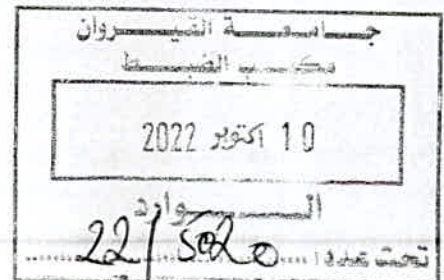 جامعة القيروان
مكتب الضبط
10 اكتوبر 2022
الوارد
تحت عدد: 22/5020